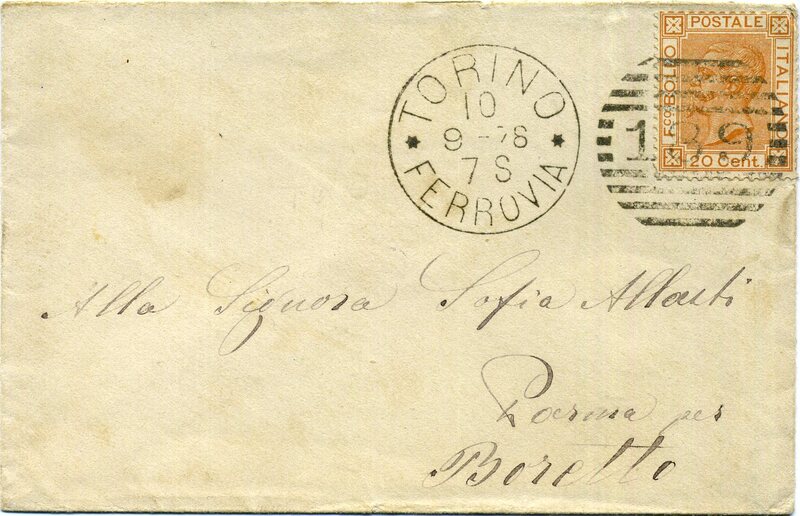 TORINO
10
9-78
7 S
FERROVIA
POSTALE
Fco BOLLO
ITALIANO
20 Cent.
189
Alla Signora Sofia Allasti
Parma per
Boretto